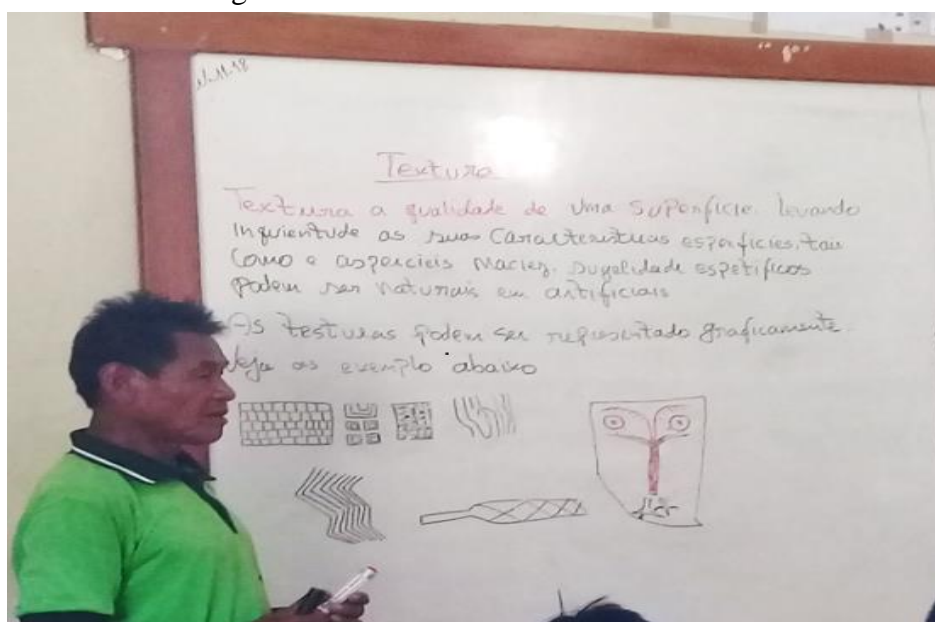 Textura
Textura a qualidade de uma superfície. levando
Inquientude as suas Caracteristicas esperficies, tais
Como e aspercieis Maciez. Sugalidade espetificos
Podem ser naturais em artificiais
As testuras podem ser representado graficamente.
Veja os exemplo abaixo